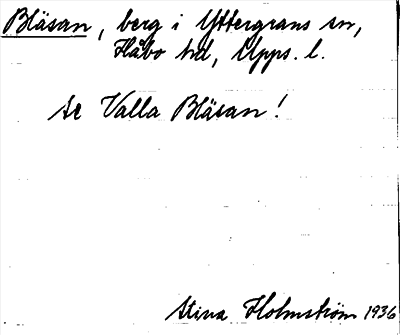 Bläsan, berg i Yttergrans sn,
Håbo hd, Upps. l.
Se Valla Bläsan!
Stina Holmström 1936